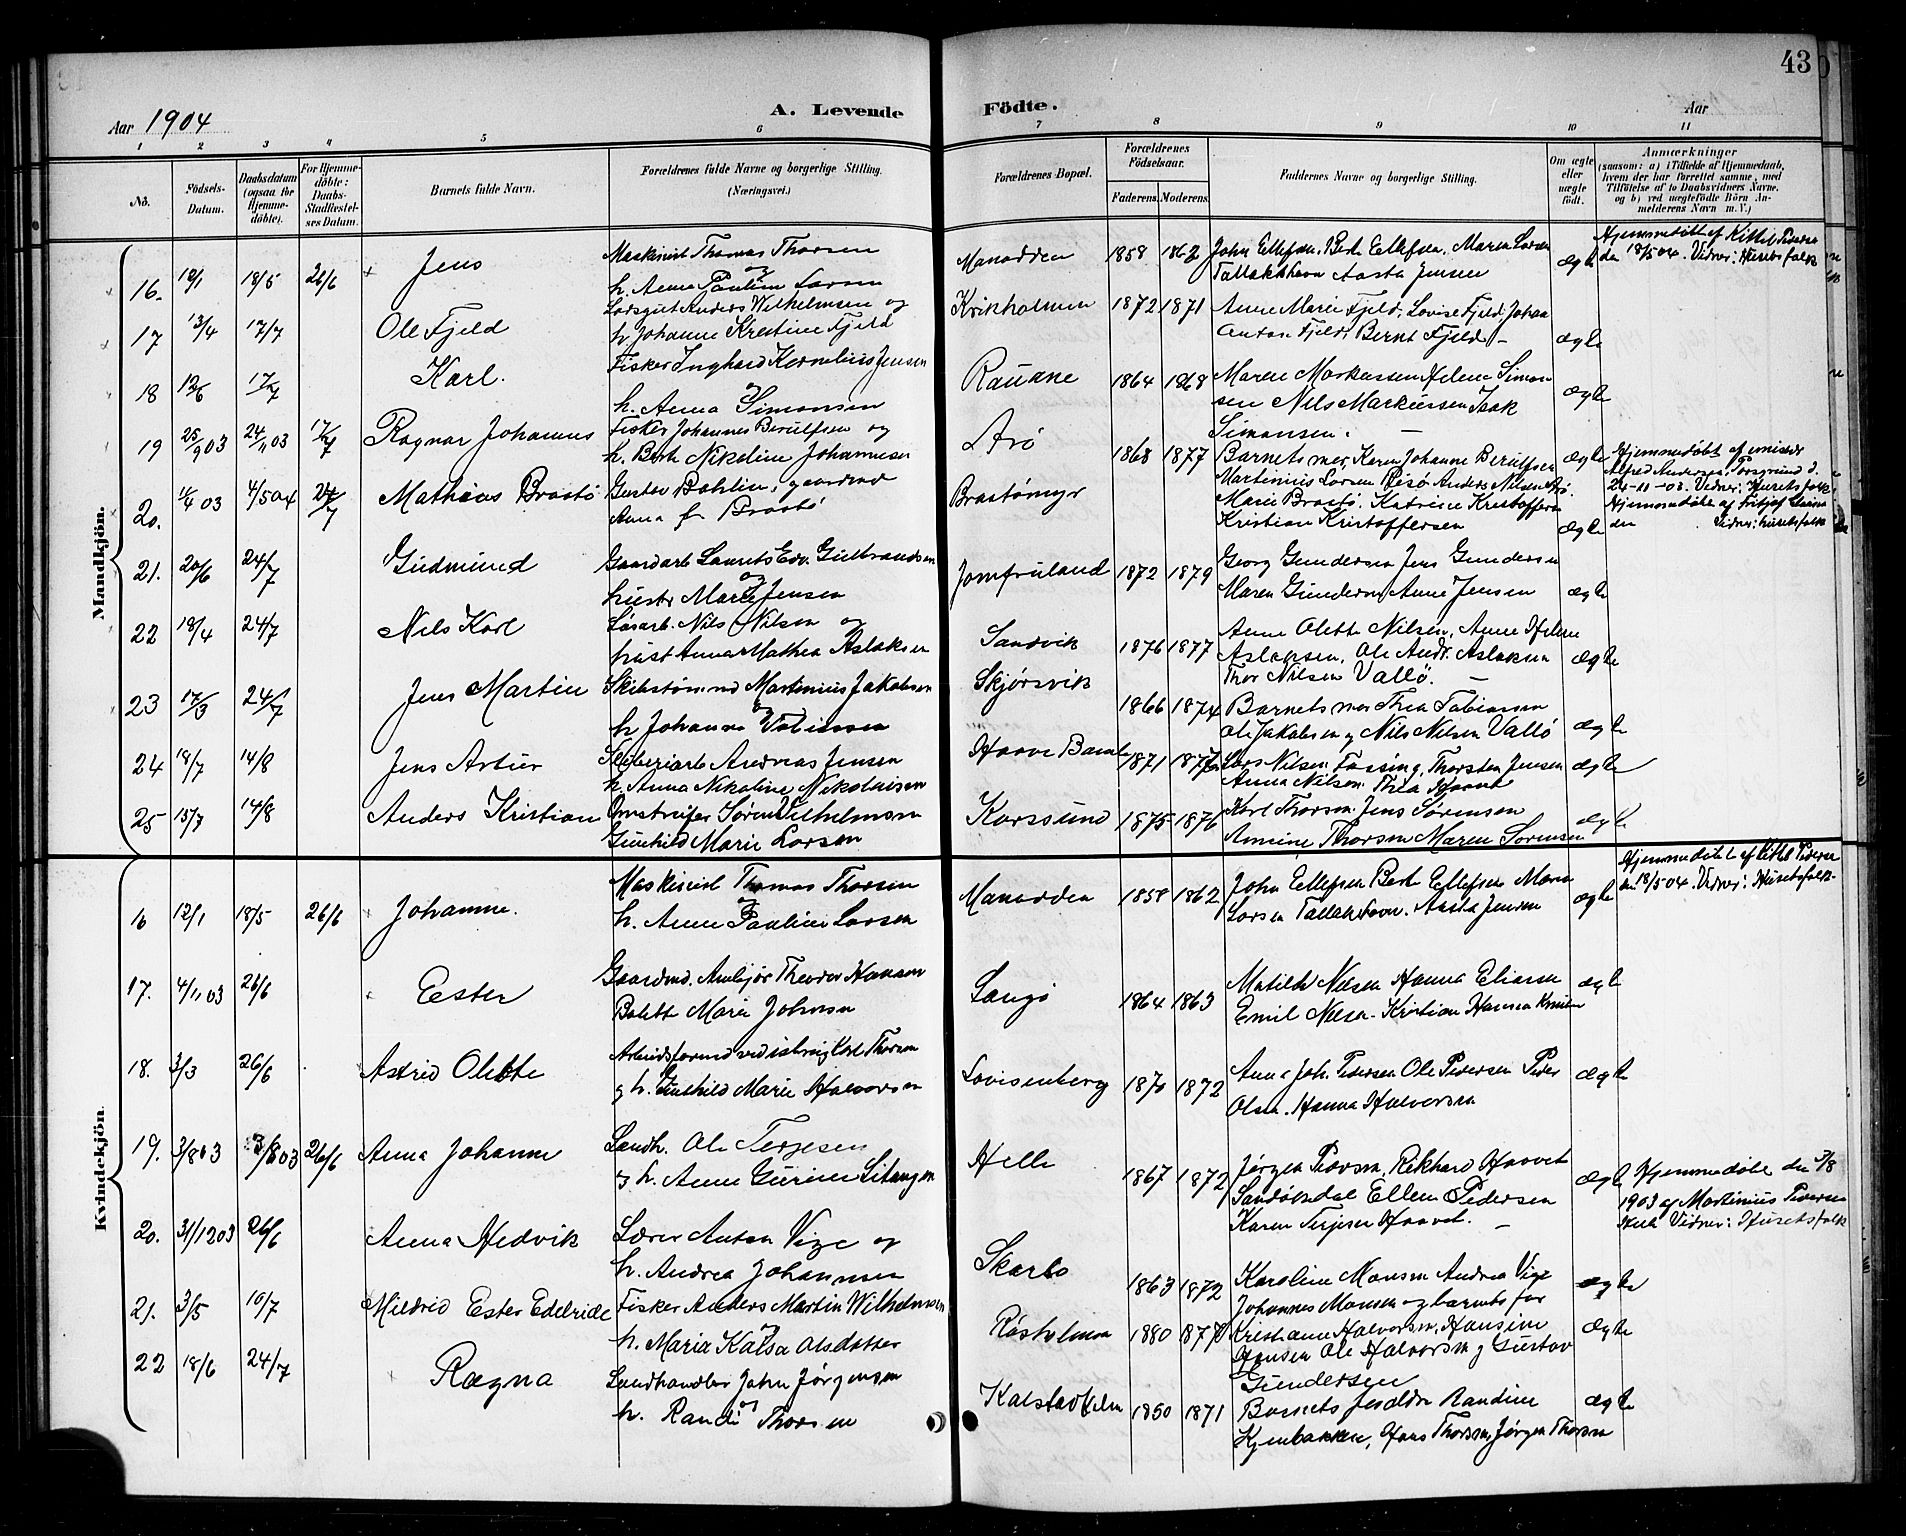 43
Aar 1904
A. Levende Födte.
Aar
1 2 3 4 5 6 7 8 9 10 11
No.
Födsels-Datum.
Daabsdatum (ogsaa for Hjemme-döbte).
For Hjemme-döbte: Daabs-Stadfæstelses Datum.
Barnets fulde Navn.
Forældrenes fulde Navne og borgerlige Stilling.
(Næringsvei.)
Forældrenes Bopæl.
Forældrenes Födselsaar.
Faderens. Moderens.
Faddernes Navne og borgerlige Stilling.
Om ægte eller uægte födt.
Anmærkninger
(saasom: a) i Tilfælde af Hjemmedaab,
hvem der har forrettet samme, med
Tilföielse af to Daabsvidners Navne,
og b) ved uægtefödte Börn An-
melderens Navn m. V.)
Mandkjön.
16. 18/5 26/6 Jens Maskinist Thomas Thorsen og
h. Anna Pauline Larsen
1858 1862 John Ellefsen, Berte Ellefsen, Maren Larsen
Aasta Jensen
ægte
Hjemmedöbt af Kittel Pedersen
den 18/5 04. Vidner: Husets folk
17 13/4 17/7 Ole Fjeld Anders Wilhelmsen og
h. Johanne Kristine Fjeld
Krikholmen 1872 1871 Anne Marie Fjeld, Lovise Fjeld, Johan
Anton Fjeld, Bernt Fjeld –
ægte
18 17/7 Karl. Fisker Inghard Kornelius Jensen
og
h. Anna Simonsen
Rauane 1864 1868 Maren Markussen Helene Simon
sen Nils Markussen Isak
Simonsen. –
ægte
19 25/9 03 24/11 03 17/7 Ragnar Johannes Fisker Johannes Berulfsen og
h. Berte Nikoline Johannesen
Arö 1868 1877 Barnets mor, Karen Johanne Berulfsen
Martinius Larsen Anders Nilsen Arö.
ægte
Hjemmedöbt af
Alfred Andersen, Porsgrund d.
24-11-03. Vidner: Husets folk
20. 4/5 04 24/7 Mathias Brastö Gustav Bohlin, gaardmd
Anna f. Brastö
Brastömyr Marie Brastö, Katrine Kristoffersen
Kristian Kristoffersen
ægte
Hjemmedöbt af Fritjof
den Vidner: husets folk
21. 20/6 24/7 Gudmund Gaardarb. Laurits Edv. Gulbrandsen
og
hustr Marie Jensen
Jomfruland 1872 1879 Georg Gundersen Jens Gundersen
Maren Gundersen Anne Jensen
ægte
22 18/4 24/7 Nils Karl Nils Nilsen og
hust Anna Mathea Aslaksen
Sandvik 1876 1877 Anne Olette Nilsen, Anne Helene
Aslaksen, Ole Andr. Aslaksen
Thor Nilsen Vallö. –
ægte
23 17/3 24/7 Jens Martin Skibstømmermd Martinius Jakobsen
og
h Johanne Tobiassen
Skjørsvik 1866 1874 Barnets mor Thea Tobiassen
Ole Jakobsen og Nils Nilsen Vallö
ægte
24 18/7 14/8 Jens Artur Andreas Jensen
h. Anna Nikoline Nikolaisen
Haave Bamle 1871 Lars Nilsen Fossing, Thorsten Jensen
Anna Nilsen. Thea Haavet
ægte
25 15/7 14/8 Anders Kristian Sören Vilhelmsen
Gunhild Marie Larsen
Korssund 1875 1876 Karl Thorsen. Jens Sörensen
Annine Thorsen Maren Sörensen
ægte
Kvindekjön.
16 12/1 18/5 26/6 Johanne. Maskinist Thomas Thorsen
og
h. Anne Pauline Larsen
1858 1862 John Ellefsen Berte Ellefsen Maren
Larsen Aasta Jensen
ægte
Hjemmedöbt af Kittel Pedersen
den 18/5 04. Vidner: Husets folk.
17. 4/11 03 26/6 Ester Gaardmd. Theodor Hansen
Bolette Marie Johnsen
Langö 1864 1863 Matilde Nilsen Hanna Eliasen
Emil Nilsen. Kristian Hanna
ægte
18. 3/3 26/6 Astrid Olette Arbeidsformd ved isbrug Karl Thorsen
og h. Gunhild Marie Halvorsen
Lovisenberg 1870 1872 Anna Joh. Pedersen Ole Pedersen Peder
Olsen. Hanna Halvorsen
ægte
19. 3/8 03 3/8 03 26/6 Anna Johanne Landh. Ole Terjesen
og h. Anne Gurine Litangen
Helle 1867 1872 Jørgen Rikhard Haavet
Sandökedal Ellen Pedersen
Karen Terjesen Haavet. –
ægte
Hjemmedöbt den 3/8
1903 af Martinius Pedersen
Vidner: Husets folk
20. 31/12 03 26/6 Anna Hedvik Lærer Anton Vige og
h. Andrea Johannesen
Skarbo 1863 1872 Karoline Monsen Andrea Vige
Johannes Monsen og barnets far
ægte
21. 3/5 10/7 Mildrid Ester Edelride Fisker Anders Martin Wilhelmsen
og
h. Maria Kaisa Olsdatter
1880 1877 Kristianne Halvorsen. Hansine
Hansen Ole Halvorsen og Gustav
Gundersen
ægte
22 18/6 24/7 Ragna Landhandler John Jörgensen
og
h. Randi Thorsen
Kalstadkilen 1850 1871 Barnets foreldre Randine
Kjenbakken, Hans Thorsen, Jørgen Thorsen
ægte